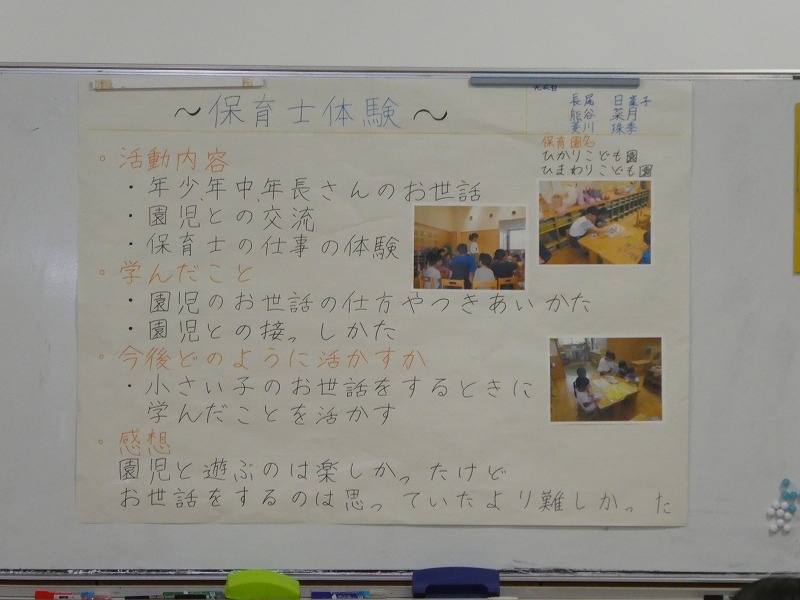 ～保育士体験～
長尾 日菜子
熊谷 菜月
菱川 珠季
保育園名
ひかりこども園
ひまわりこども園
。活動内容
・年少、年中、年長さんのお世話
・園児との交流
・保育士の仕事の体験
。学んだこと
・園児のお世話の仕方やつきあいかた
・園児との接っしかた
。今後どのように活かすか
・小さい子のお世話をするときに
学んだことを活かす
。感想
園児と遊ぶのは楽しかったけど
お世話をするのは思っていたより難しかった